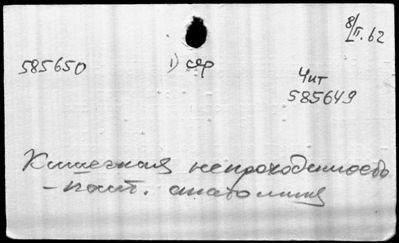 8/II.62
585650 1) сер
Чит
585649
Кишечная непроходимость
- пат. анатомия